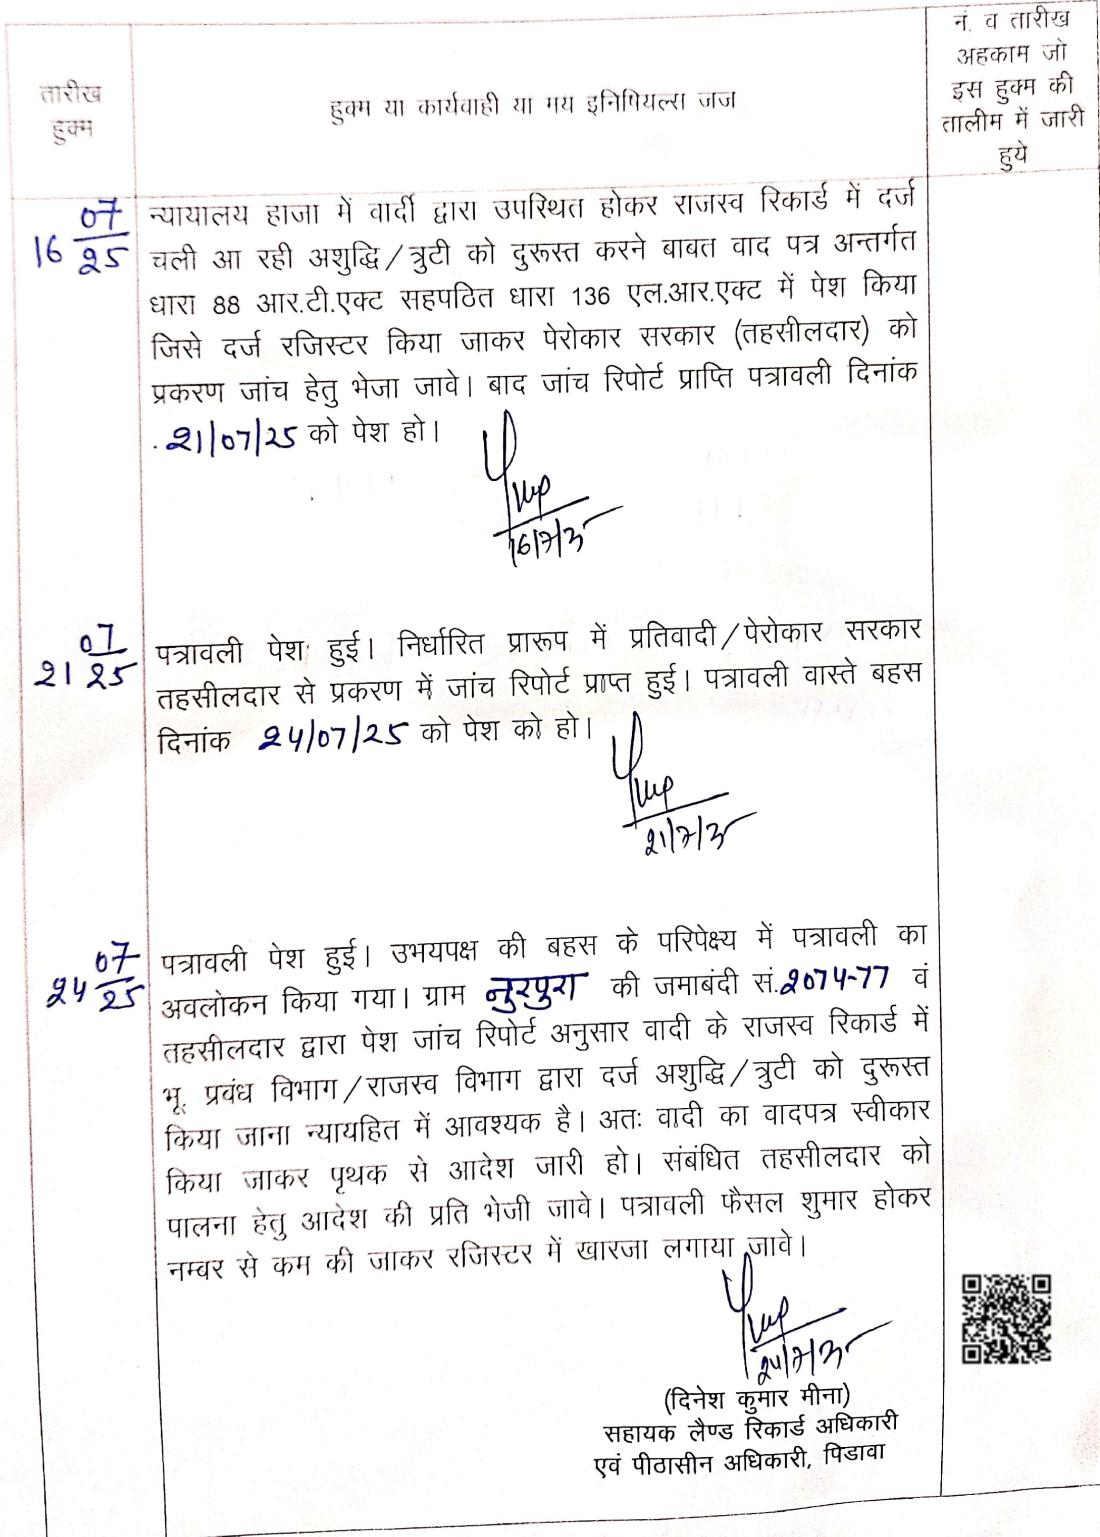 तारीख
हुक्म
हुक्म या कार्यवाही या मय इनिषियल्स जज
नं. व तारीख
अहकाम जो
इस हुक्म की
तालीम में जारी
हुये
16 07/25
न्यायालय हाजा में वार्दी द्वारा उपस्थित होकर राजस्व रिकार्ड में दर्ज
चली आ रही अशुद्धि/त्रुटी को दुरूस्त करने बाबत वाद पत्र अन्तर्गत
धारा 88 आर.टी.एक्ट सहपठित धारा 136 एल.आर.एक्ट में पेश किया
जिसे दर्ज रजिस्टर किया जाकर पेरोकार सरकार (तहसीलदार) को
प्रकरण जांच हेतु भेजा जावे। बाद जांच रिपोर्ट प्राप्ति पत्रावली दिनांक
21/07/25 को पेश हो।
16/7/25
21 07/25
पत्रावली पेश हुई। निर्धारित प्रारूप में प्रतिवादी/पेरोकार सरकार
तहसीलदार से प्रकरण में जांच रिपोर्ट प्राप्त हुई। पत्रावली वास्ते बहस
दिनांक 24/07/25 को पेश को हो।
21/7/25
24 07/25
पत्रावली पेश हुई। उभयपक्ष की बहस के परिपेक्ष्य में पत्रावली का
अवलोकन किया गया। ग्राम नुरपुरा की जमाबंदी सं.2074-77 वं
तहसीलदार द्वारा पेश जांच रिपोर्ट अनुसार वादी के राजस्व रिकार्ड में
भू. प्रवंध विभाग/राजस्व विभाग द्वारा दर्ज अशुद्धि/त्रुटी को दुरूस्त
किया जाना न्यायहित में आवश्यक है। अतः वादी का वादपत्र स्वीकार
किया जाकर पृथक से आदेश जारी हो। संबंधित तहसीलदार को
पालना हेतु आदेश की प्रति भेजी जावे। पत्रावली फैसल शुमार होकर
नम्बर से कम की जाकर रजिस्टर में खारजा लगाया जावे।
24/7/25
(दिनेश कुमार मीना)
सहायक लैण्ड रिकार्ड अधिकारी
एवं पीठासीन अधिकारी, पिडावा